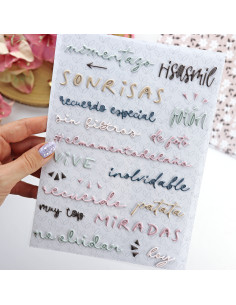 momentazo
risasmil
SONRISAS
recuerdo especial
sin filtros
#elmomentodelaño
VIVE
inolvidable
recuerdo
patata
muy top
MIRADAS
no olvidar